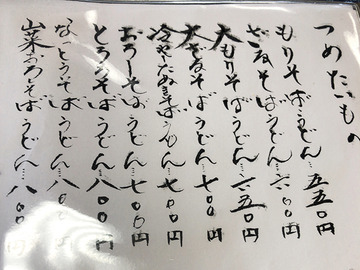 つめたいもの
もりそばうどん…五五〇円
ざるそばうどん…六〇〇円
大もりそばうどん…六五〇円
大ざるそばうどん…七〇〇円
冷やしたぬきそばうどん…七〇〇円
おろしそばうどん…七〇〇円
とろろそばうどん…八〇〇円
なっとうそばうどん…八〇〇円
山菜おろしそばうどん…八〇〇円